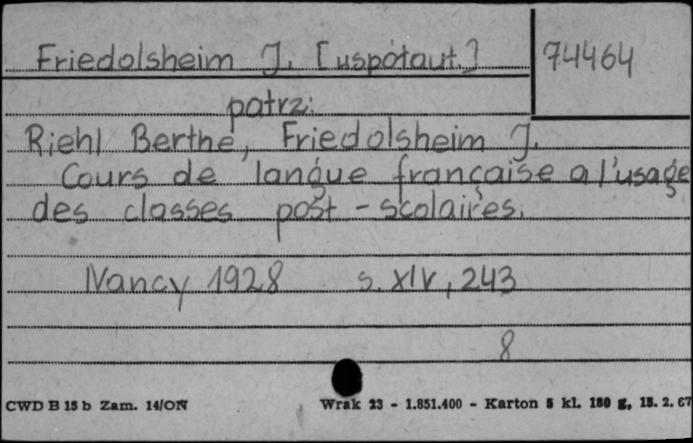 Friedolsheim J. [uspótaut.]
74464
patrz:
Riehl Berthe, Friedolsheim J.
Cours de langue française a l'usage
des classes post-scolaires.
Nancy 1928 s. XIV, 243
8
CWD B 15 b Zam. 14/ON Wrak 23 - 1.851.400 - Karton 5 kl. 180 g, 15. 2. 67